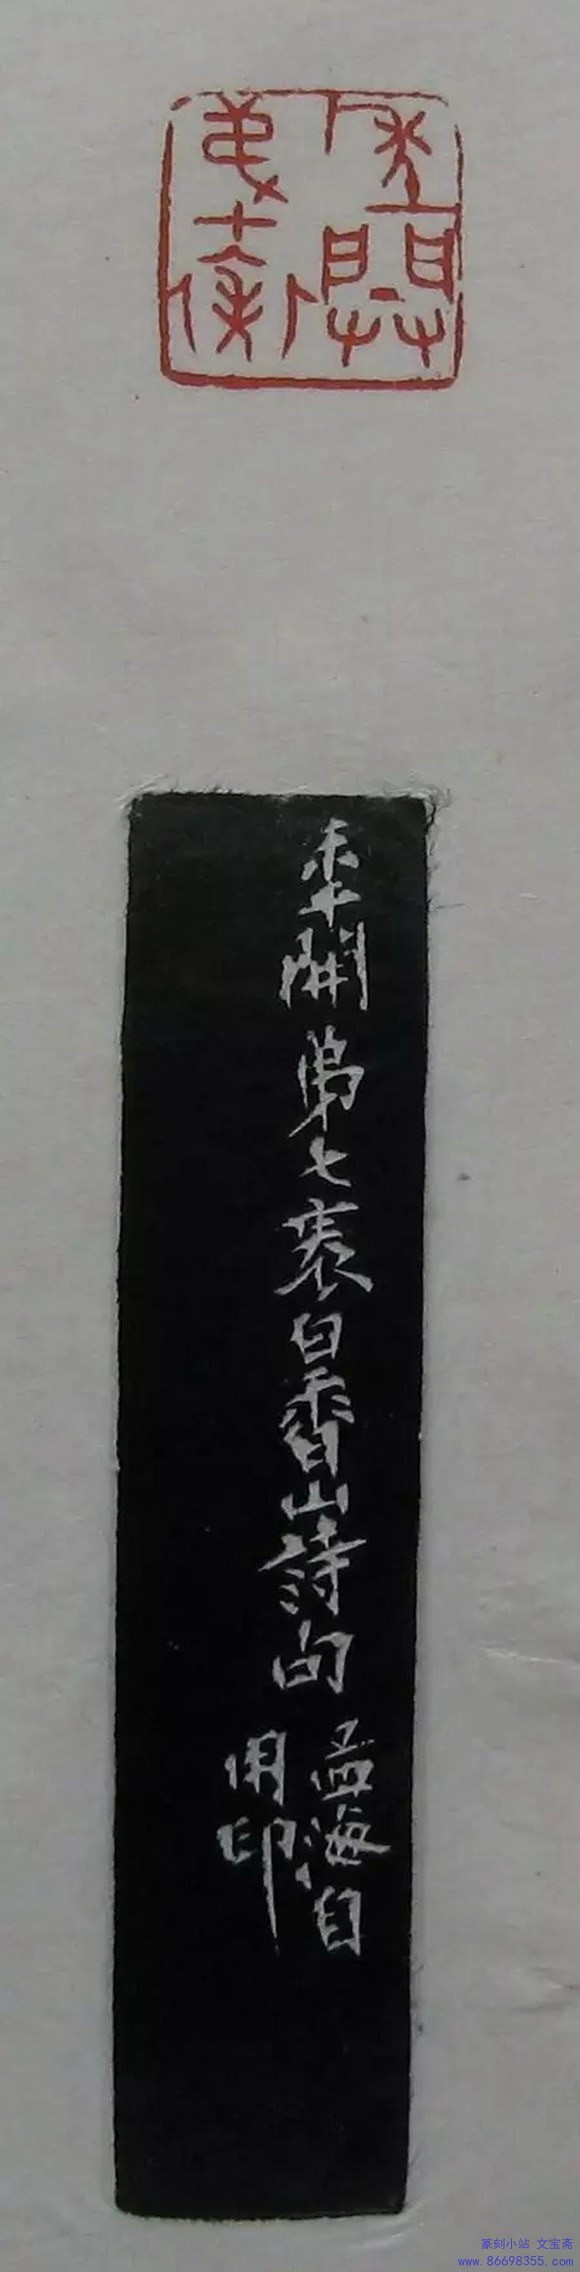 秊開
弟七袠
秊開弟七袠白香山詩句
孟海自
用印
篆刻小站 文宝斋
www.86698355.com